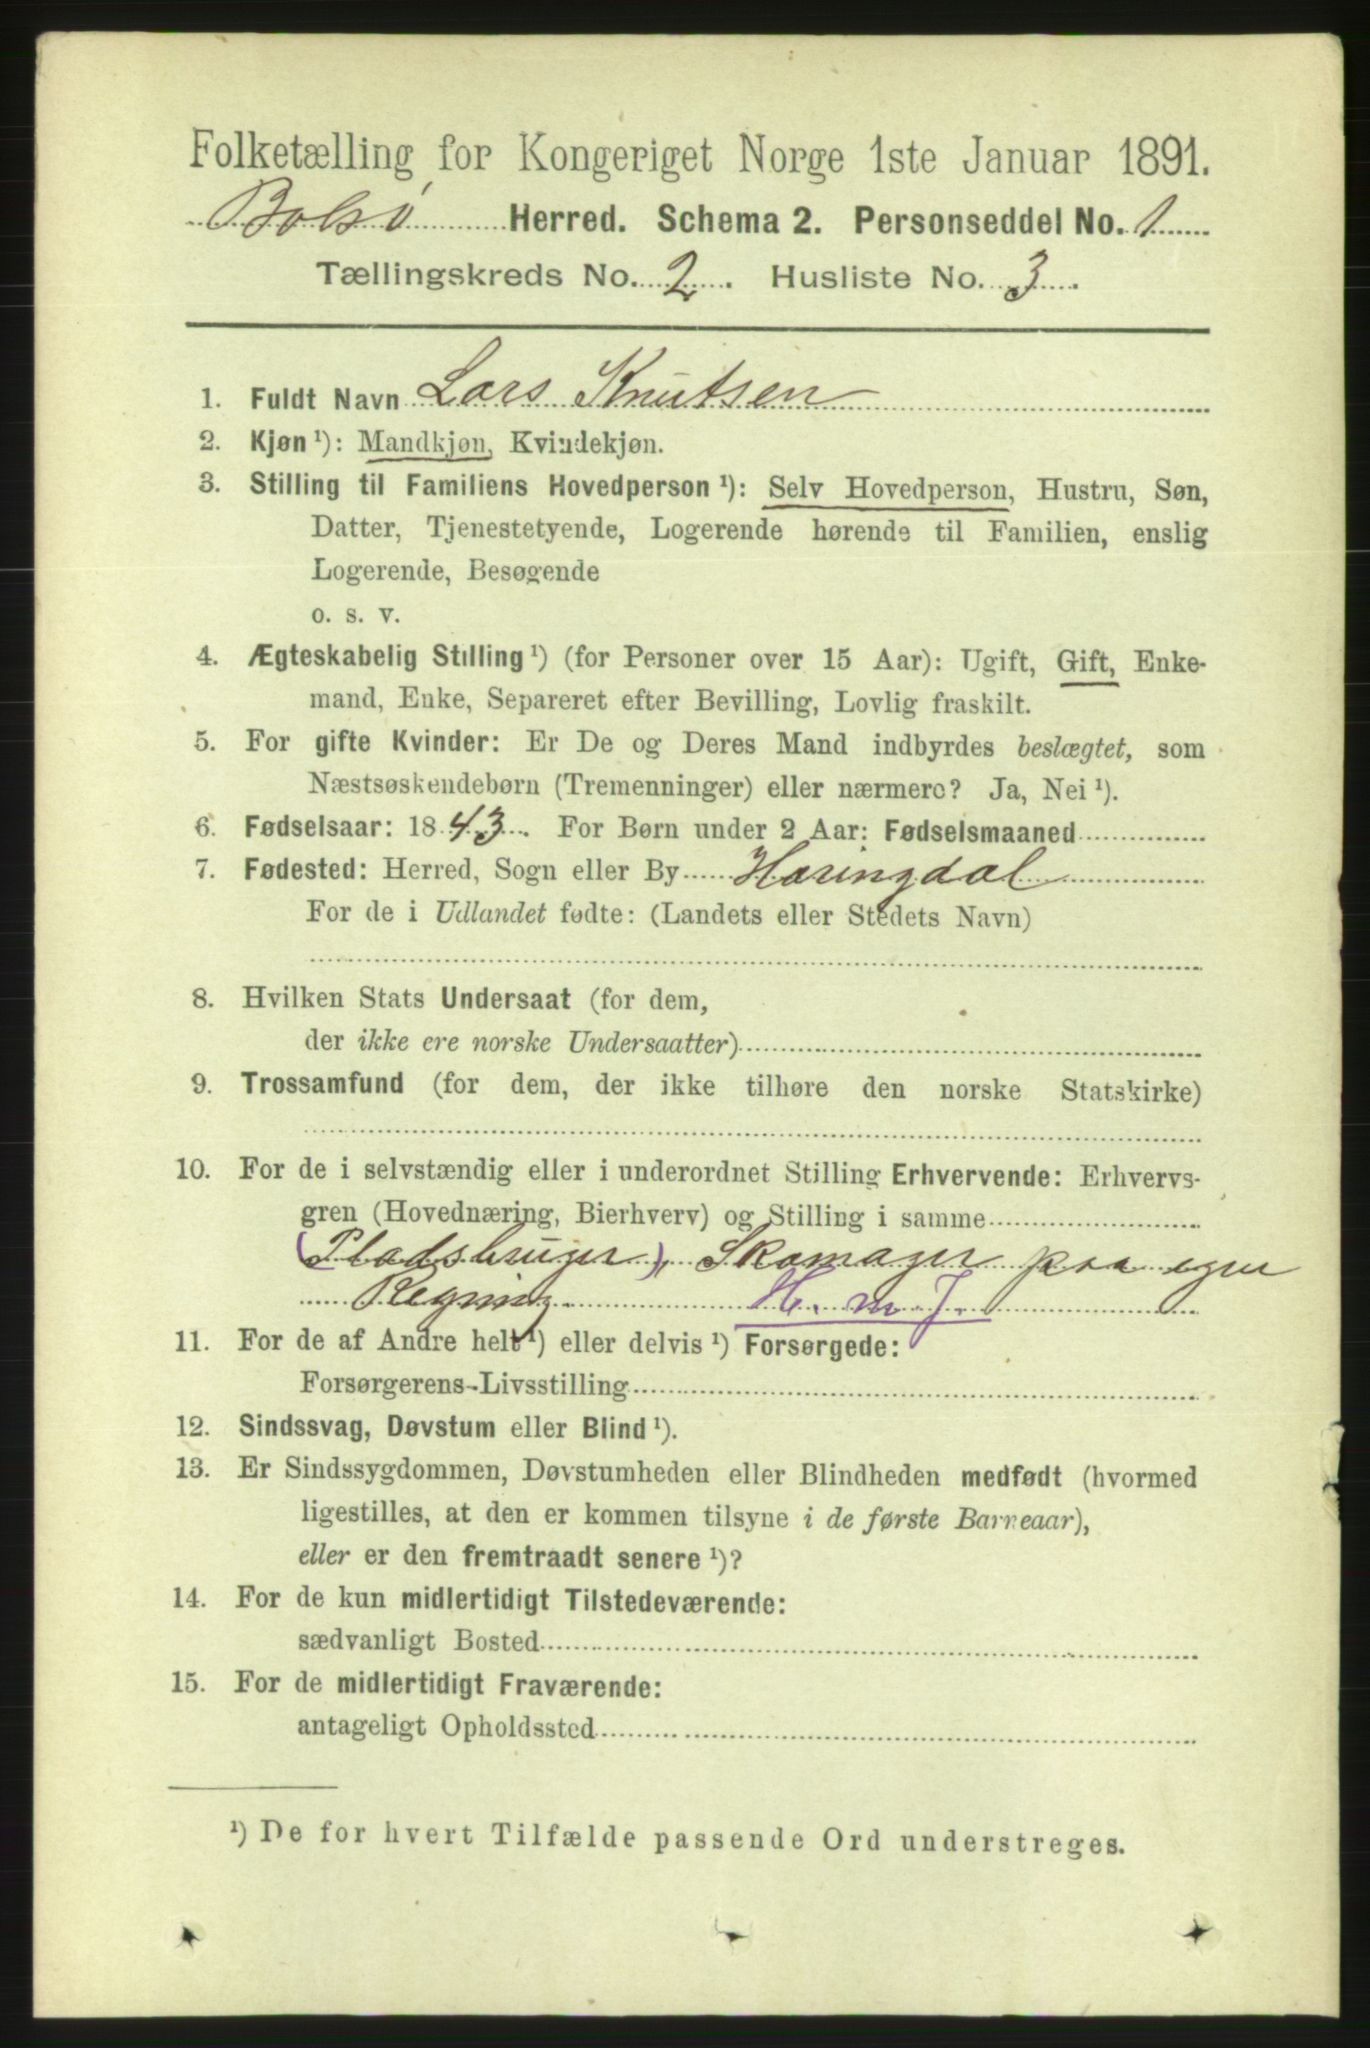 Folketælling for Kongeriget Norge 1ste Januar 1891.
Bolsø Herred. Schema 2. Personseddel No. 1
Tællingskreds No. 2. Husliste No. 3.
1. Fuldt Navn Lars Knutsen
2. Kjøn ¹): Mandkjøn, Kvindekjøn.
3. Stilling til Familiens Hovedperson ¹): Selv Hovedperson, Hustru, Søn,
Datter, Tjenestetyende, Logerende hørende til Familien, enslig
Logerende, Besøgende
o. s. v.
4. Ægteskabelig Stilling ¹) (for Personer over 15 Aar): Ugift, Gift, Enke-
mand, Enke, Separeret efter Bevilling, Lovlig fraskilt.
5. For gifte Kvinder: Er De og Deres Mand indbyrdes beslægtet, som
Næstsøskendebørn (Tremenninger) eller nærmere? Ja, Nei ¹).
6. Fødselsaar: 1843. For Børn under 2 Aar: Fødselsmaaned
7. Fødested: Herred, Sogn eller By Haringdal
For de i Udlandet fødte: (Landets eller Stedets Navn)
8. Hvilken Stats Undersaat (for dem,
der ikke ere norske Undersaatter)
9. Trossamfund (for dem, der ikke tilhøre den norske Statskirke)
10. For de i selvstændig eller i underordnet Stilling Erhvervende: Erhvervs-
gren (Hovednæring, Bierhverv) og Stilling i samme
(Pladsbruger), Skomager paa egen
Regning H. m J.
11. For de af Andre helt ¹) eller delvis ¹) Forsørgede:
Forsørgerens Livsstilling
12. Sindssvag, Døvstum eller Blind ¹).
13. Er Sindssygdommen, Døvstumheden eller Blindheden medfødt (hvormed
ligestilles, at den er kommen tilsyne i de første Barneaar),
eller er den fremtraadt senere ¹)?
14. For de kun midlertidigt Tilstedeværende:
sædvanligt Bosted
15. For de midlertidigt Fraværende:
antageligt Opholdssted
¹) De for hvert Tilfælde passende Ord understreges.